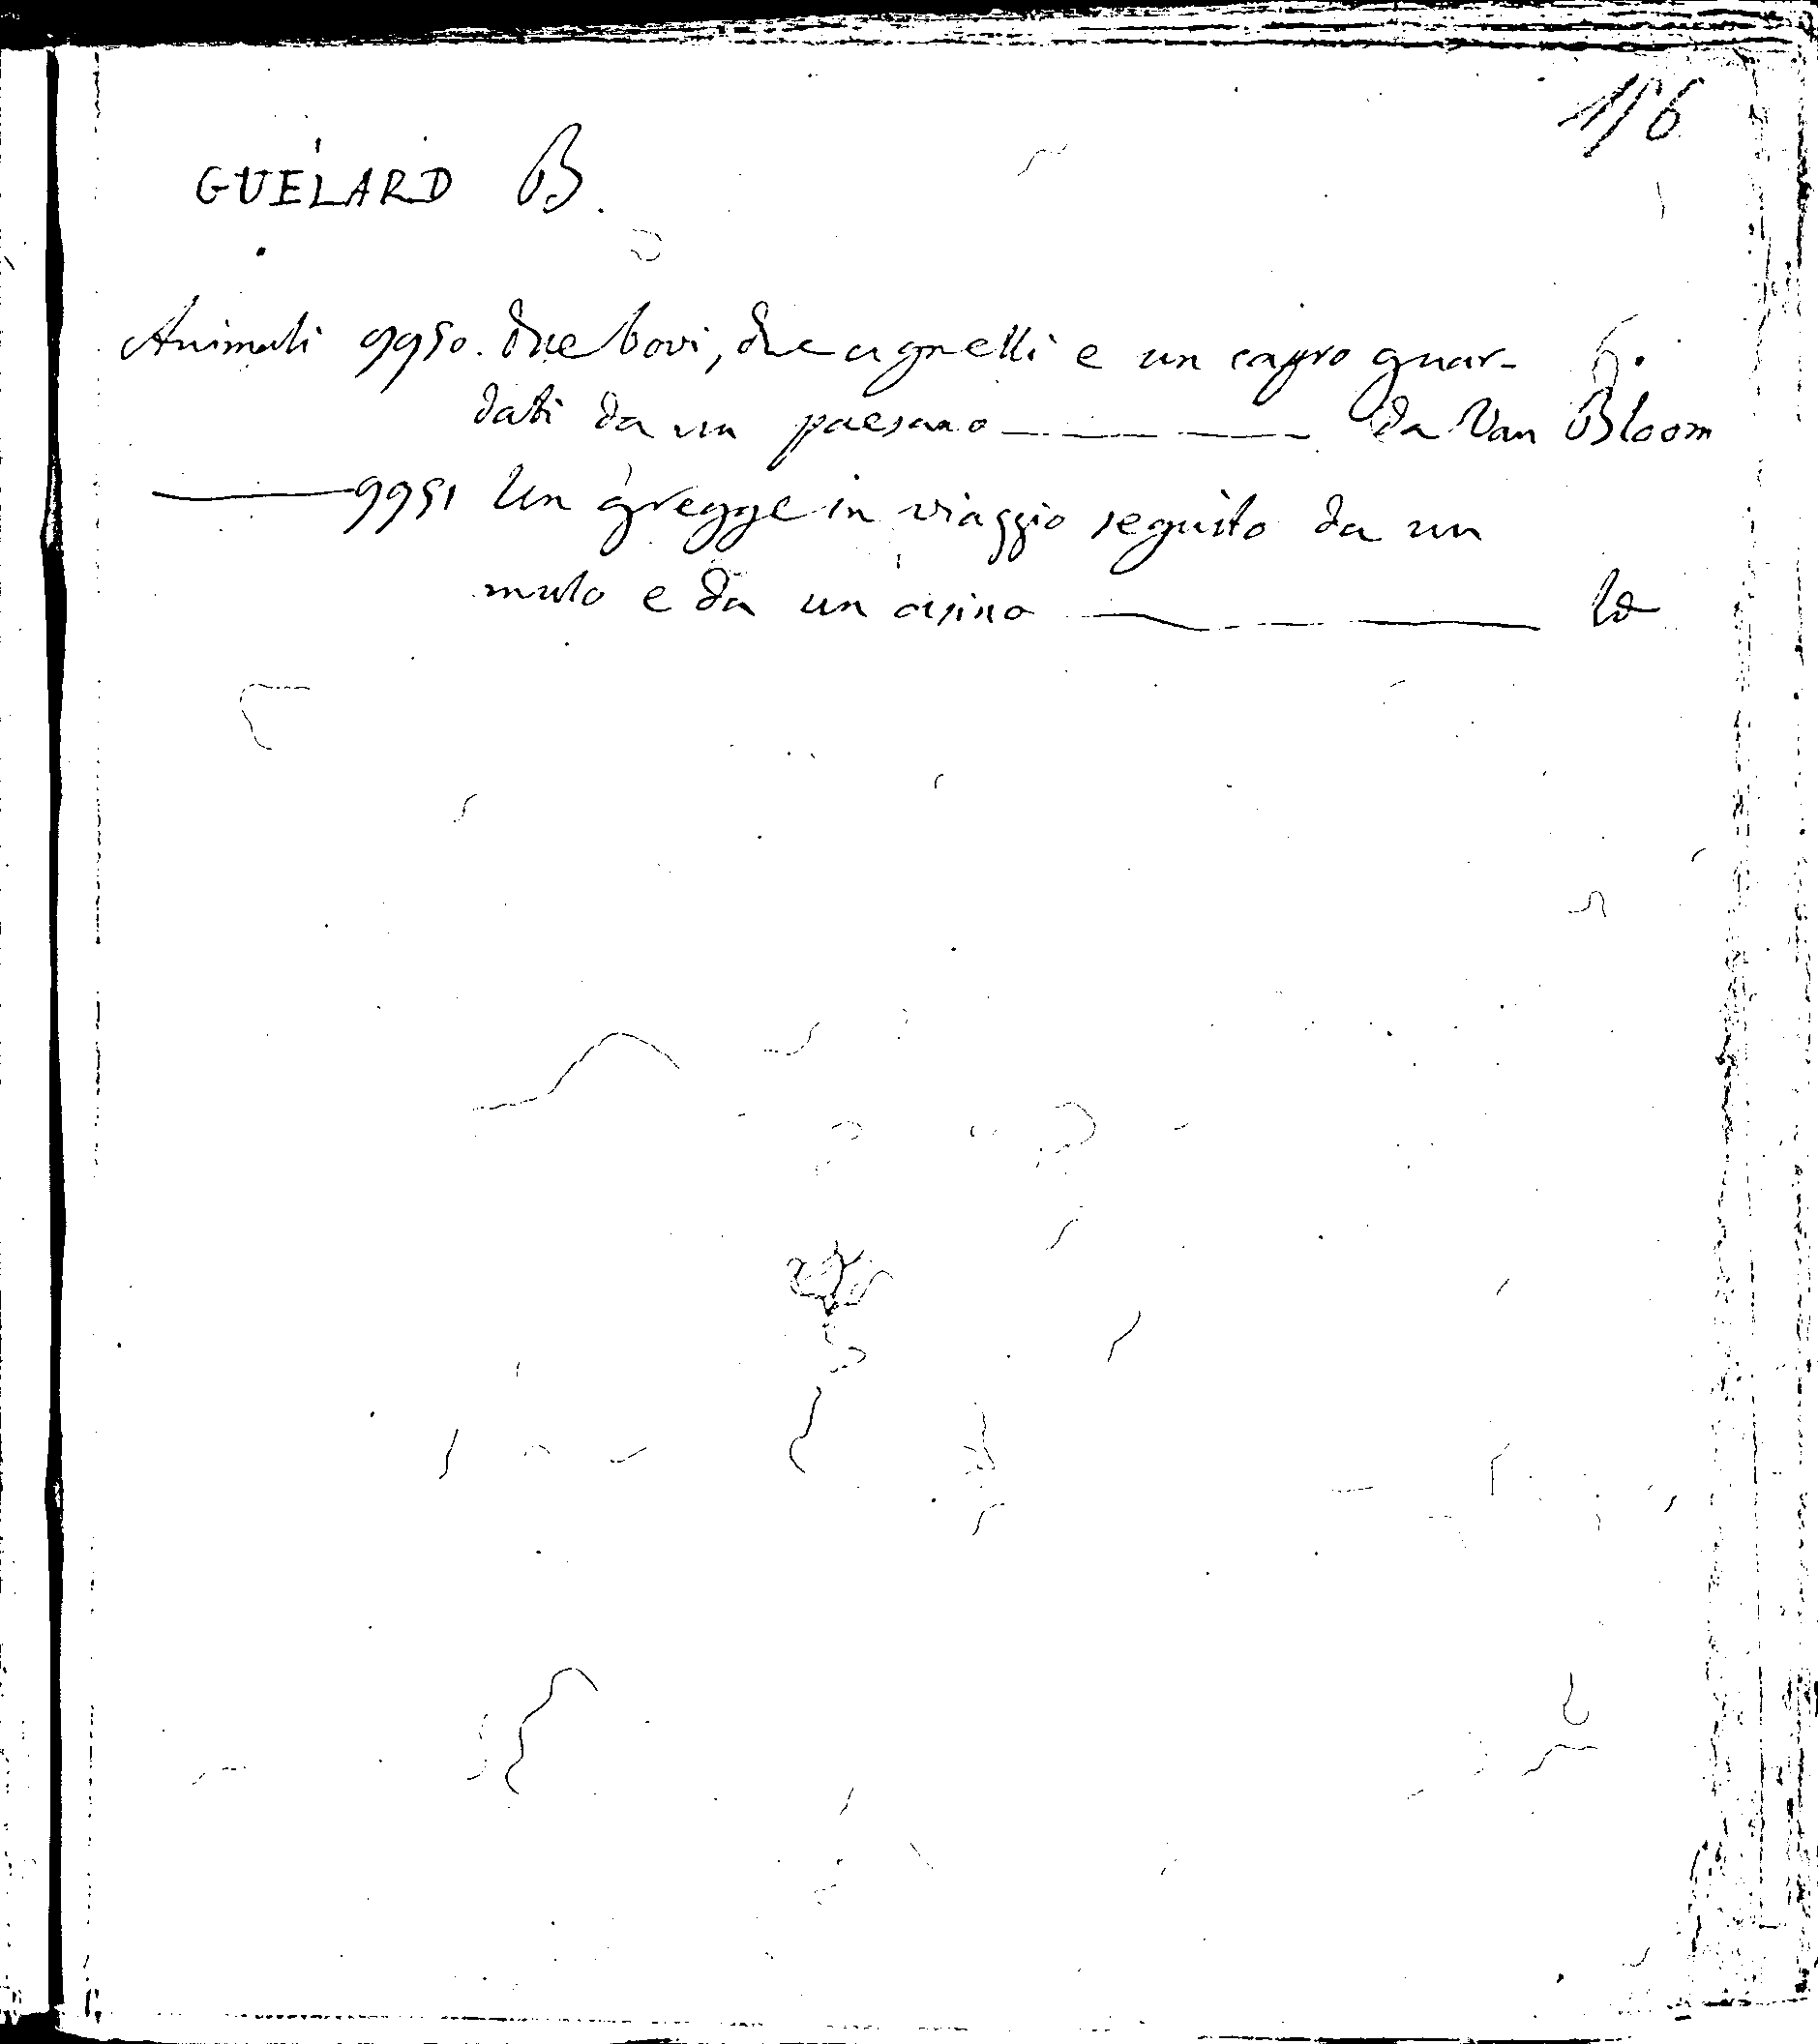 156
GUÉLARD B.
Animali 9950. due bovi, due agnelli e un capro guar-
dati da un paesano ——— da Van Bloom
——— 9951 Un gregge in viaggio seguito da un
mulo e da un asino ———